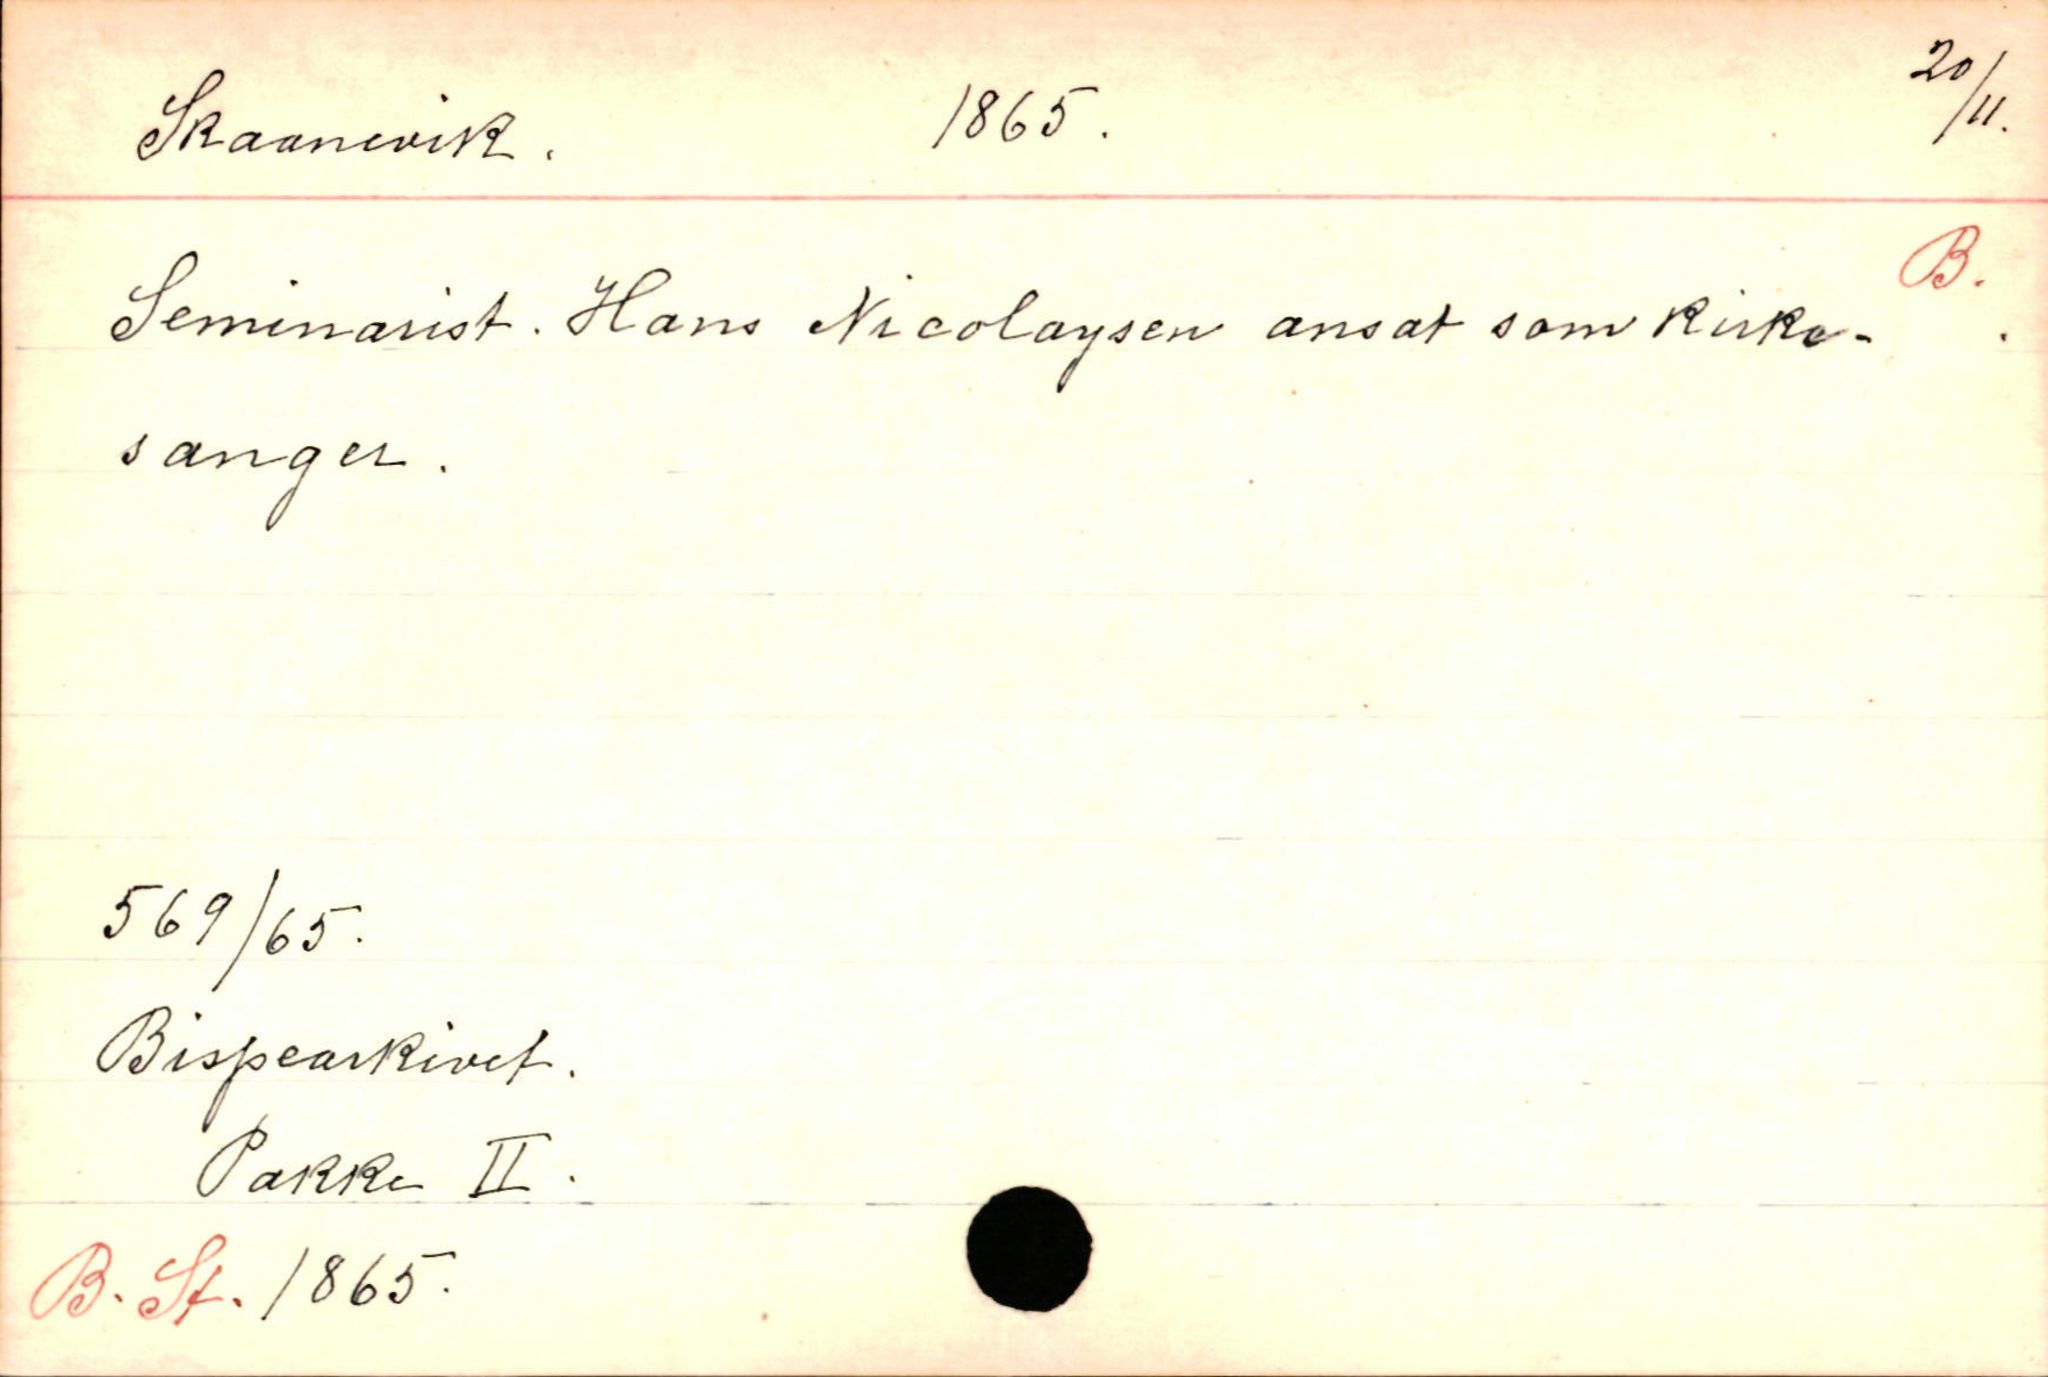 Skaanevik. 1865. 20/11.
B.
Seminarist. Hans Nicolaysen ansat som kirke-
sanger.
569/65.
Bispearkivet.
Pakke II.
B. St. 1865.